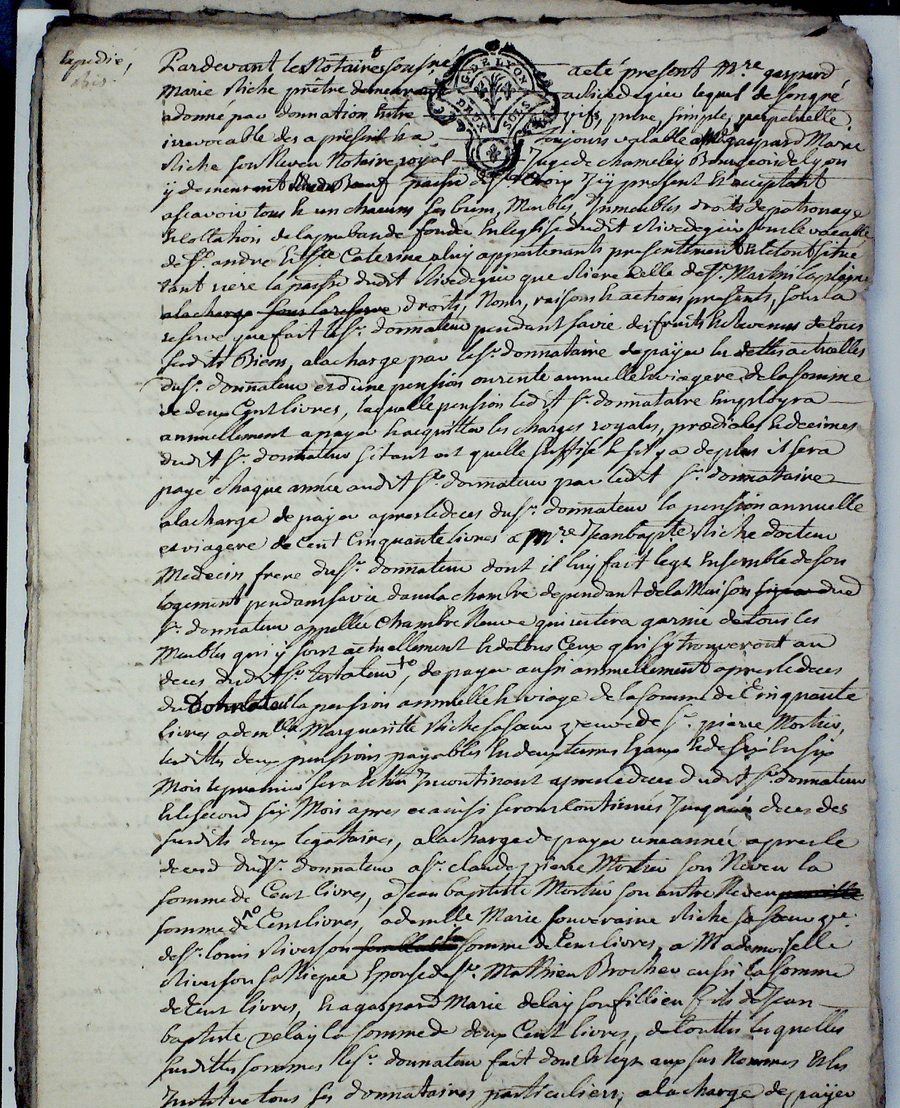 Expedié,
Pardevant les Notaires soussignés a eté present Mre gaspard
G. DE LYON
DEUX SOLS
Marie Riche prêtre demeurant lequel de son gré
a donné par donnation entre vifs, pure, simple, perpetuelle
irrevocable des a present & a toujours valable a gaspard Marie
Riche son Neveu Notaire royal Juge de chameley Bourgeois de lyon
y demeurant paroisse de Ste Croix Icy present & acceptant
ascavoir tous & un chacuns ses biens, Meubles Immeubles droits de patronage
& collation de la prebande fondée En leglise dudit sous le vocable
de St. andre & Ste Caterine a luy appartenants presentement & le tout situé
tant riere la paroisse dudit que riere celle de St. Martin la plaine
a la charge sous la reserve droits, Noms, raisons & actions presents, sous la
reserve que fait le Sr. donnateur pendant sa vie des fruits & revenus de tous
susdits Biens, a la charge par le Sr. donnataire de payer les dettes actuelles
du Sr. donnateur et d'une pension ou rente annuelle & viagere de la somme
de deux Cent livres, laquelle pension ledit Sr. donnataire Employra
annuellement a payer & acquitter les charges royales, prædiales & decimes
dudit Sr. donnateur si tant est quelle suffise & sil y a de plus il sera
payé chaque année audit Sr. donnateur par ledit Sr. donnataire
a la charge de payer apres le deces du Sr. donnateur la pension annuelle
et viagere de Cent Cinquante livres a Mre Jean bapte Riche docteur
Medecin, frere du Sr. donnateur dont il luy fait legs Ensemble de son
logement pendant sa vie dans la chambre dependant de la Maison dud
Sr. donnateur appellée chambre Neuve qui restera garnie de tous les
Meubles qui y sont actuellement & de tous Ceux qui s'y trouveront au
deces dudit Sr. testateur, de payer aussi annuellement apres le deces
du Donnateur la pension annuelle & viage de la somme de Cinquante
livres a demlle Margueritte Riche sa soeur veuve de Sr. pierre Mortier,
lesdittes deux pensions payables En deux termes Egaux & de six En six
Mois le premier sera Echu Incontinant apres le deces dudit Sr. donnateur
& le second six Mois apres et ainsi seront Continués Jusqu'au deces des
susdits deux legataires, a la charge de payer une année apres le
deces du Sr. donnateur a Sr. claude pierre Mortier son Neveu la
somme de Cent livres, a Jean baptiste Mortier son autre Neveu
somme de Cent livres, a demlle Marie souveraine Riche sa soeur
de Sr. louis Riverson somme de Cent livres, a Mademoiselle
Riverson sa Niepce Epouse de Sr. Mathieu Brochet aussi la somme
de Cent livres, & a gaspard Marie delay son fillieu fils de Jean
baptiste delay la somme de deux Cent livres, de touttes lesquelles
susdittes sommes le Sr. donnateur fait don & legs aux sus Nommés & les
Institue tous ses donnataires particuliers, a la charge de payer